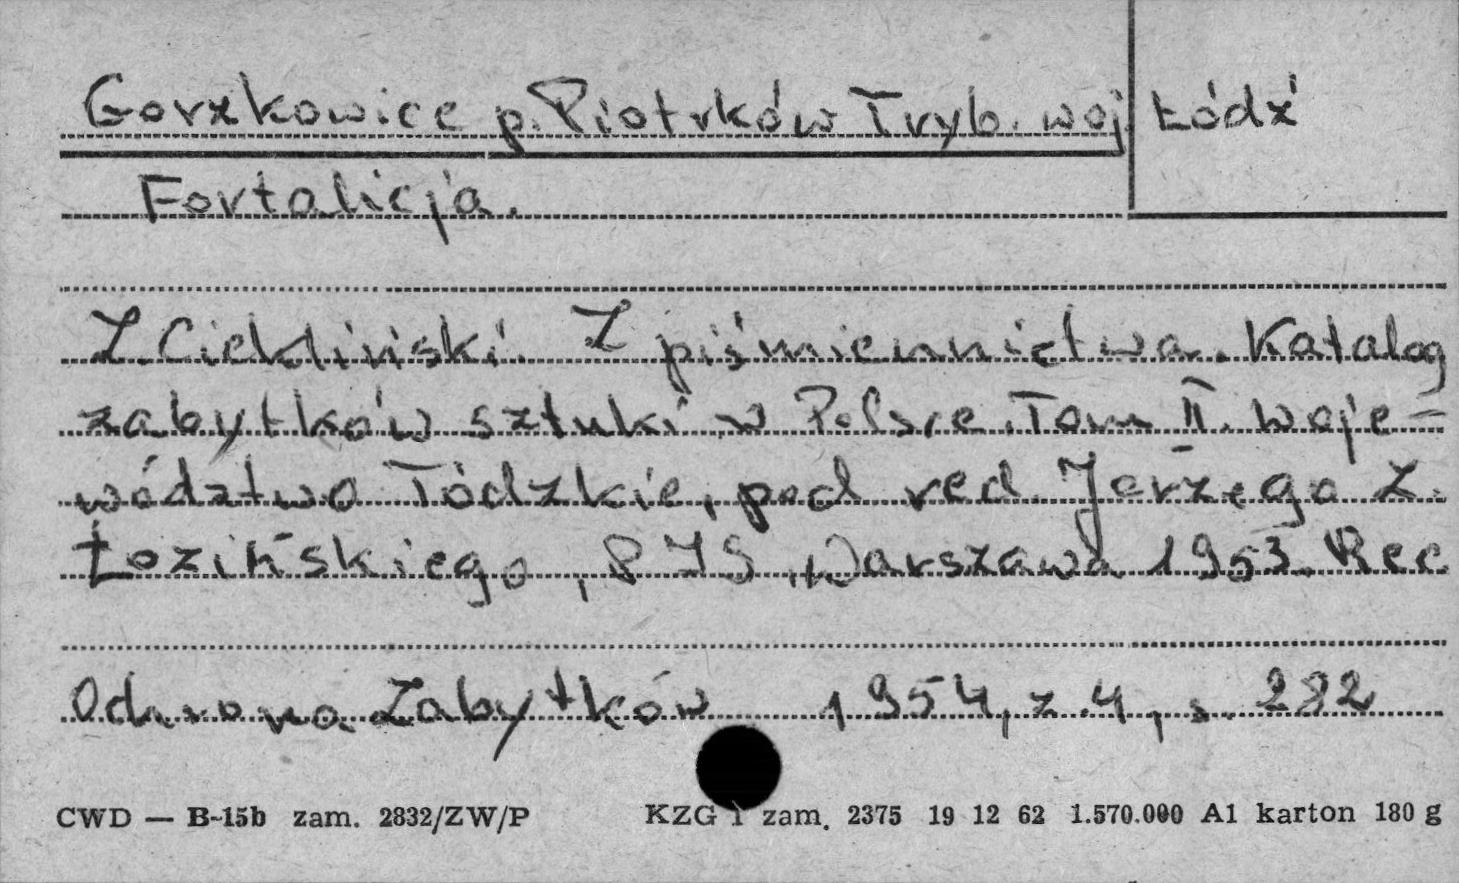 Gorzkowice p. Piotrków Tryb. woj. Łódź
Fortalicja.
Z. Ciekliński. Z piśmiennictwa. Katalog
zabytków sztuki w Polsce. Tom II. Woje-
wództwo Łódzkie, pod red. Jerzego Z.
Łozińskiego, PIS, Warszawa 1953. Rec
Ochrona Zabytków 1954, z. 4, s. 282
CWD — B-15b zam. 2832/ZW/P KZG 1 zam. 2375 19 12 62 1.570.000 A1 karton 180 g